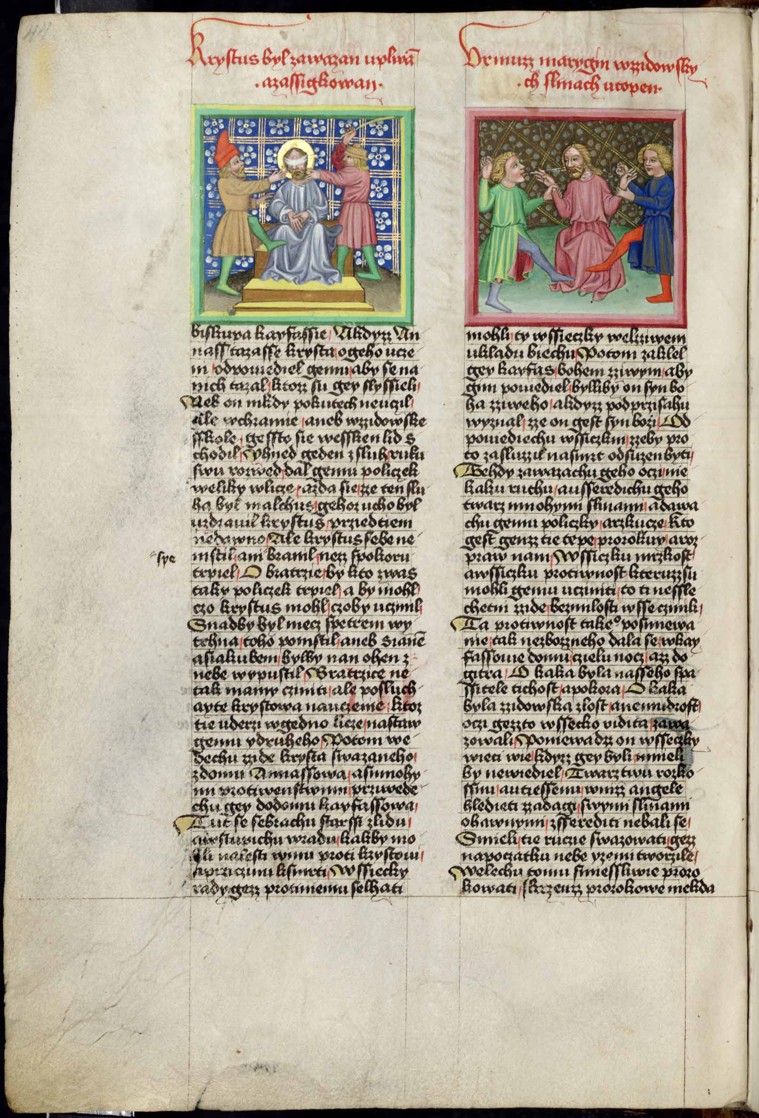 Krystus byl zawazan uplwā
azassigkowan
Vr muzz marygin wzzidowsky
ch slinach utopen
biskupa kayfassie Akdyz An
nass tazasse krysta o geho ucze
ni odpowiediel gemu aby se na
nich tazal ktozz su gey slyssieli
Neb on nikdy pokutech neuczil
Ale wchramie aneb wzzidowske
sskole gessto sie wessken lid s
chodil Vyhned geden z sluh ruku
swu wzwed dal gemu policzek
weliky wlicze azda sie zze ten slu
ha byl malchus gehoz ucho byl
uzdrawil krystus przied tiem
nedawno Ale krystus sebe ne
mstil ani branil nezz spokoru
trpiel O bratrzie by kto zwas
taky policzek trpiel a by mohl
czo krystus mohl czo by uczinil
Snad by byl mecz s petrem wy
trhna toho pomstil aneb s ianē
a siakubem bylby nan ohen z
nebe wypustil Bratrzice ne
tak mamy cziniti ale posluch
ayte krystowa nauczenie ktoz
tie uderzi w gedno licze nastaw
gemu y druheho Potom we
dechu zzide krysta swazaneho
z domu Annassowa a s mnohy
mi protiwenstwimi przywede
chu gey do domu kayfassowa
Tut se sebrachu starssi z lidu
a wstupichu w radu kakby mo
hli nalesti winu proti krystowi
a przicziniu k smrti Wssiecky
rady gezz proti niemu selhati
sye
mohli ty wssieczky welzziwem
ukladu biechu Potom zaklel
gey kayfas bohem zziwym aby
gim powiediel bylliby on syn bo
ha zziweho a kdyzz pod przisahu
wyznal zze on gest syn bozi Od
powiediechu wssiczkni zzeby pro
to zasluzil na smrt odsuzen byti
Tehdy zawazachu geho oczi nie
kaku ruchu a usseredichu geho
twarz mnohymi slinami a dawa
chu gemu policzky a rzkucze kto
gest genzz tie tepe prorokuy a wy
praw nam Wssiczku mrzkost
a wssiczku protiwnost kteruzz su
mohli gemu ucziniti to ti nessle
chetni zzide bez milosti wssie czinili
Ta protiwnost take posmiewa
nie tak nezbozneho dala se w kay
fassowie domu czielu nocz azz do
gitra O kaka byla nasseho spa
sitele tichost a pokora O kaka
byla zzidowska zlost a nemudrost
oczi gezzto wssecko widita zawa
zowali Poniewadzz on wssieczky
wieci wie kdyzz gey byli mnieli
by newiediel Twarz twu rozko
ssnu a utiessenu w nizz angele
hledieti zzadagi swymi slinami
ohawnymi zsserediti nebali se
Smieli tie rucze swazowati gezz
na poczatku nebe y zemi tworzile
Welechu tomu smiessliwie proro
kowati skrzenzz prorokowe niekda